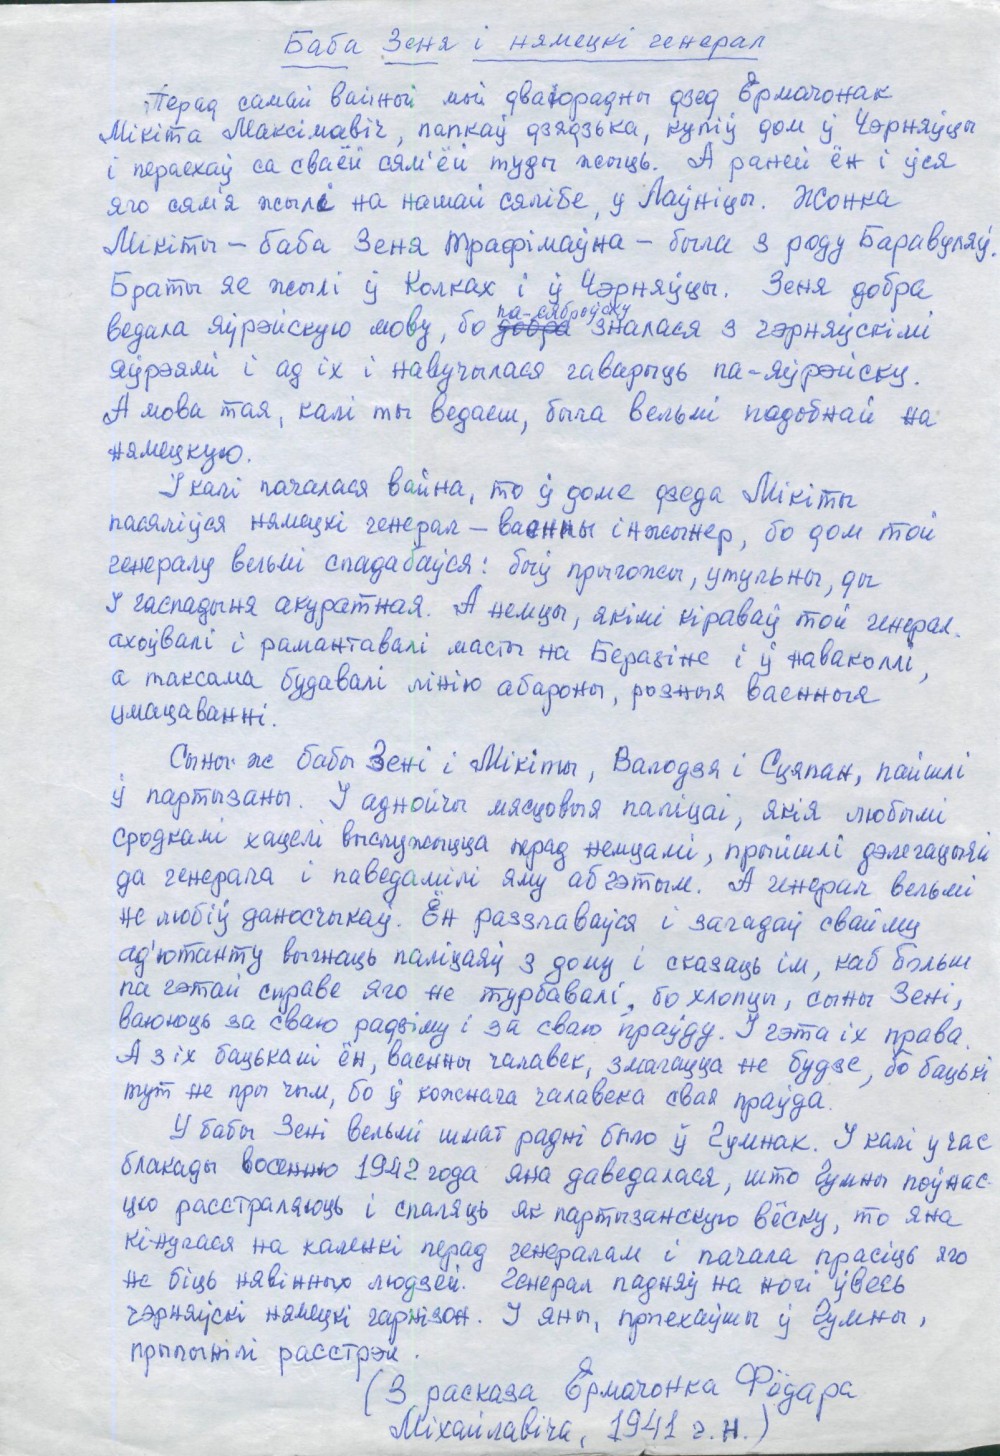 Баба Зеня і нямецкі генерал
Перад самай вайной мой двайорадны дзед Ярмачонак
Мікіта Максімавіч, папкаў дзядзька, купіў дом у Чэрняўцы
і пераехаў са сваёй сям'ёй туды жыць. А раней ён і ўся
яго сям'я жылі на нашай сялібе, у Лаўніцы. Жонка
Мікіты – баба Зеня Трафімаўна – была з роду Баравуляў.
Браты яе жылі ў Колках і ў Чэрняўцы. Зеня добра
ведала яўрэйскую мову, бо па-сяброўску зналася з чэрняўскімі
яўрэямі і ад іх і навучылася гаварыць па-яўрэйску.
А мова тая, калі ты ведаеш, была вельмі падобнай на
нямецкую.
І калі пачалася вайна, то ў доме дзеда Мікіты
пасяліўся нямецкі генерал – ваенны інжынер, бо дом той
генералу вельмі спадабаўся: быў прыгожы, утульны, ды
і гаспадыня акуратная. А немцы, якімі кіраваў той генерал,
ахоўвалі і рамантавалі масты на Беразіне і ў наваколлі,
а таксама будавалі лінію абароны, розныя ваенныя
умацаванні.
Сыны ж бабы Зені і Мікіты, Валодзя і Сцяпан, пайшлі
ў партызаны. І аднойчы мясцовыя паліцаі, якія любымі
сродкамі хацелі выслужыцца перад немцамі, прыйшлі дэлегацыяй
да генерала і паведамілі яму аб гэтым. А генерал вельмі
не любіў даносчыкаў. Ён раззлаваўся і загадаў свайму
ад'ютанту выгнаць паліцаяў з дому і сказаць ім, каб больш
па гэтай справе яго не турбавалі, бо хлопцы, сыны Зені,
ваююць за сваю радзіму і за сваю праўду. І гэта іх права.
А з іх бацькамі ён, ваенны чалавек, змагацца не будзе, бо бацькі
тут не пры чым, бо ў кожнага чалавека свая праўда.
У бабы Зені вельмі шмат радні было ў Гумнах. І калі у час
блакады восенню 1942 года яна даведалася, што Гумны поўнас-
цю расстраляюць і спаляць як партызанскую вёску, то яна
кінулася на каленкі перад генералам і пачала прасіць яго
не біць нявінных людзей. Генерал падняў на ночі ўвесь
чэрняўскі нямецкі гарнізон. І яны, прыехаўшы ў Гумны,
прыпынілі расстрэл.
(З расказа Ярмачонка Фёдара
Міхайлавіча, 1941 г.н.)